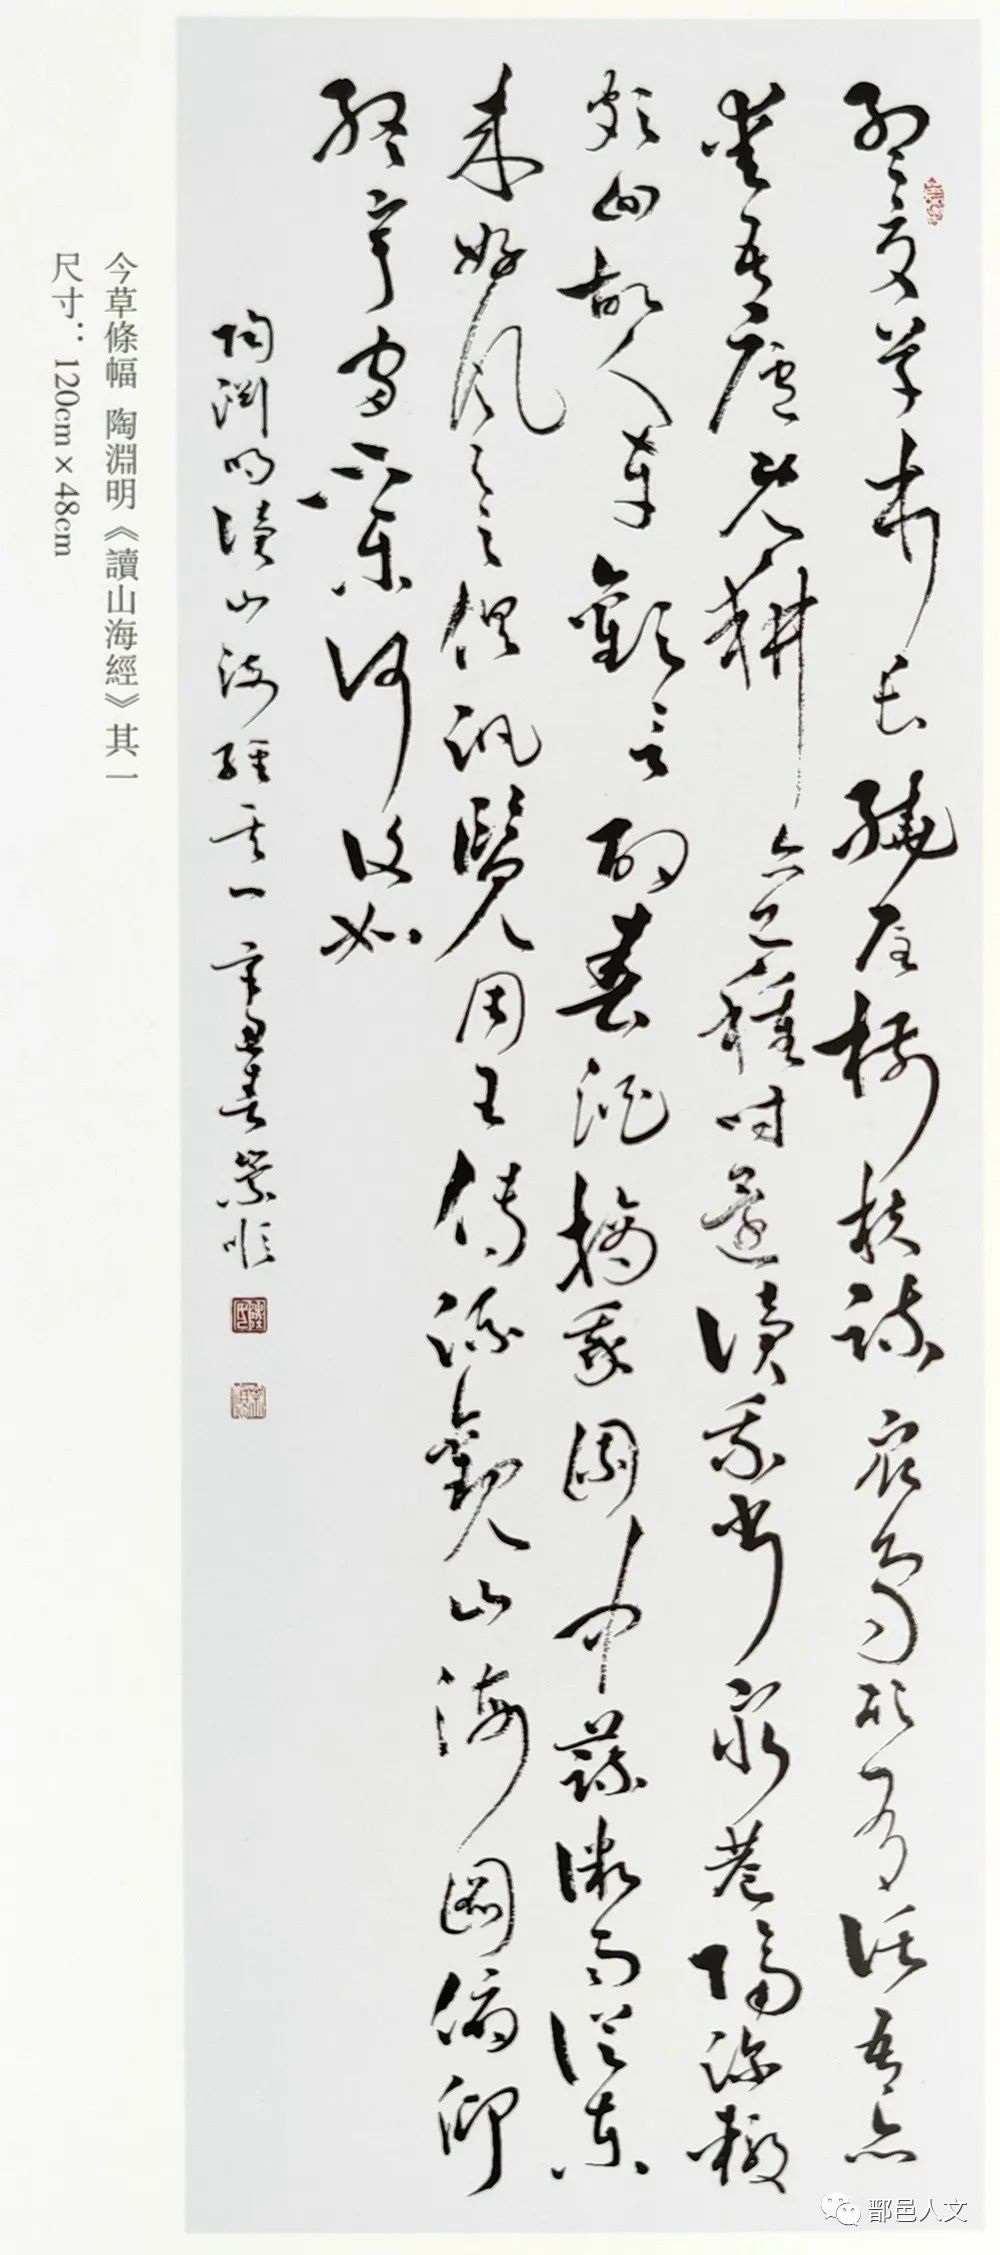 孟夏草木長繞屋樹扶疏衆鳥欣有託吾亦
愛吾廬既耕亦已種時還讀我書窮巷隔深轍
頗迴故人車歡言酌春酒摘我園中蔬微雨從東
來好風與之俱汎覽周王傳流觀山海圖俯仰
終宇宙不樂何復如
陶淵明讀山海經其一 辛丑春 榮順
今草條幅 陶淵明《讀山海經》其一
尺寸：120cm×48cm
鄯邑人文